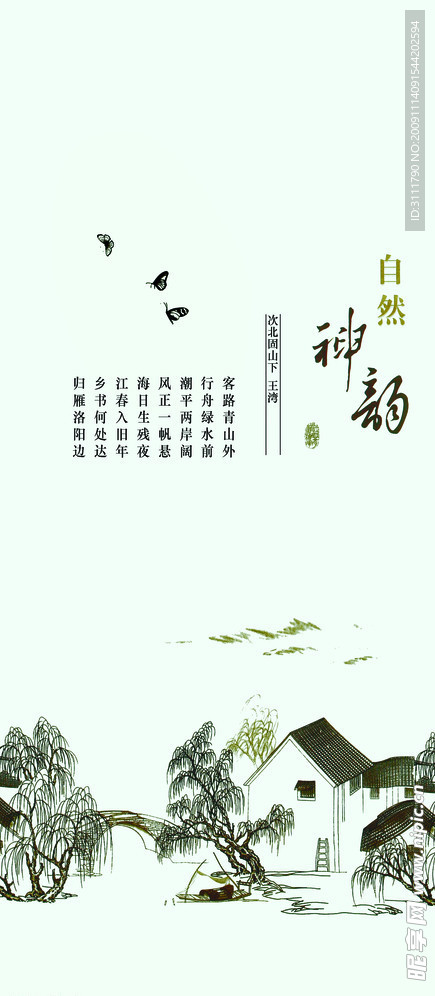 自然
神韵
次北固山下 王湾
客路青山外
行舟绿水前
潮平两岸阔
风正一帆悬
海日生残夜
江春入旧年
乡书何处达
归雁洛阳边
ID:3111790 NO:20091114091544202594
昵享网 www.nipic.cn